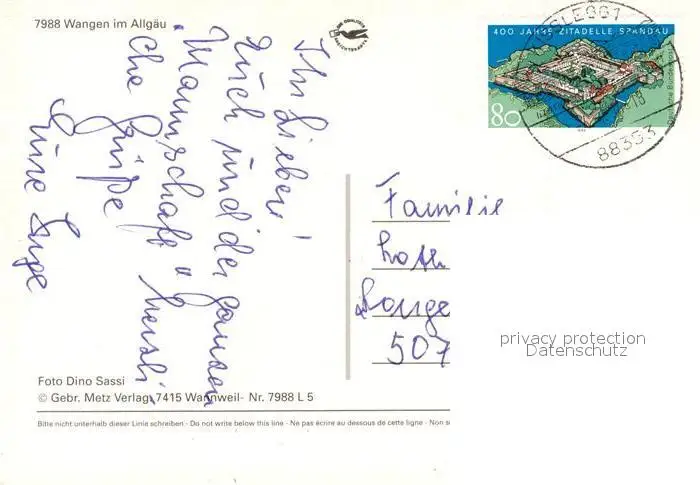 7988 Wangen im Allgäu
400 JAHRE ZITADELLE SPANDAU
80
Deutsche Bundespost
88353
Ihr Lieben!
Euch und der ganzen
Mannschaft u
che Grüße
Eure Inge
Familie
Loth
Lange
507
privacy protection
Datenschutz
Foto Dino Sassi
© Gebr. Metz Verlag, 7415 Wannweil- Nr. 7988 L 5
Bitte nicht unterhalb dieser Linie schreiben - Do not write below this line - Ne pas écrire au dessous de cette ligne - Non s